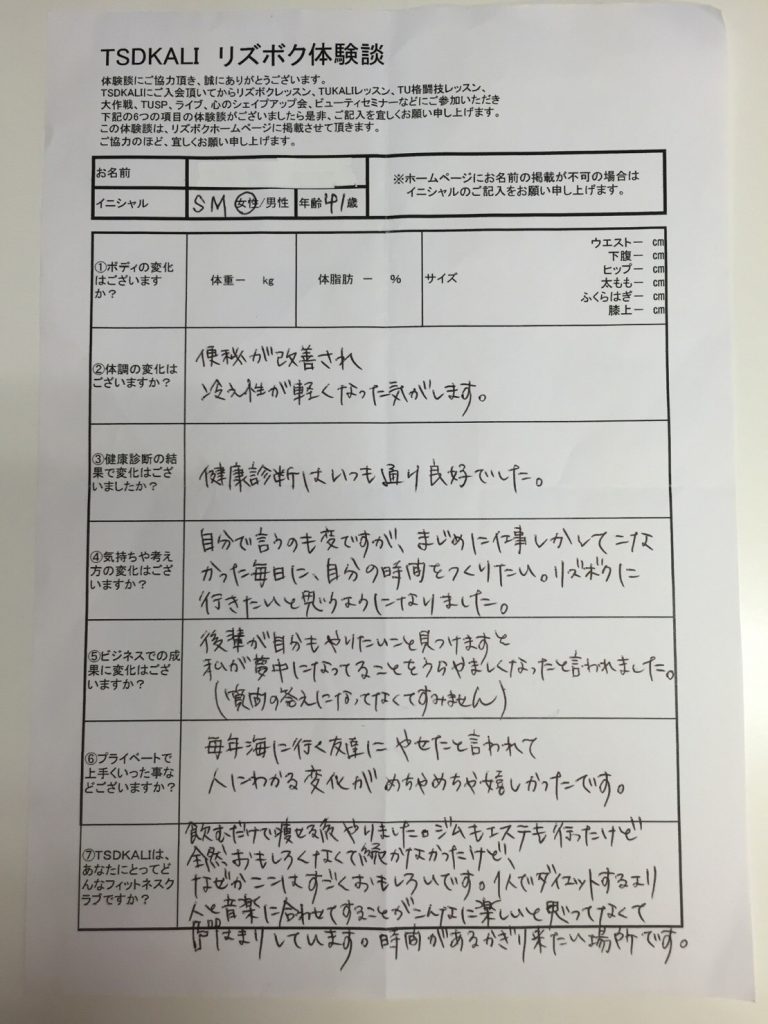 TSDKALI リズボク体験談
体験談にご協力頂き、誠にありがとうございます。
TSDKALIにご入会頂いてからリズボクレッスン、TUKALIレッスン、TU格闘技レッスン、
大作戦、TUSP、ライブ、心のシェイプアップ会、ビューティセミナーなどにご参加いただき
下記の6つの項目の体験談がございましたら是非、ご記入を宜しくお願い申し上げます。
この体験談は、リズボクホームページに掲載させて頂きます。
ご協力のほど、宜しくお願い申し上げます。
お名前
※ホームページにお名前の掲載が不可の場合は
イニシャルのご記入をお願い申し上げます。
イニシャル SM 女性/男性 年齢41歳
①ボディの変化
はございます
か?
体重ー kg
体脂肪 ー %
サイズ
ウエストー cm
下腹ー cm
ヒップー cm
太ももー cm
ふくらはぎー cm
膝上ー cm
②体調の変化は
ございますか?
便秘が改善され
冷え性が軽くなった気がします。
③健康診断の結
果で変化はござ
いましたか?
健康診断はいつも通り良好でした。
④気持ちや考え
方の変化はござ
いますか?
自分で言うのも変ですが、まじめに仕事しかしてこな
かった毎日に、自分の時間をつくりたい。リズボクに
行きたいと思うようになりました。
⑤ビジネスでの成
果に変化はござ
いますか?
後輩が自分もやりたいこと見つけますと
私が夢中になってることをうらやましくなったと言われました。
(質問の答えになってなくてすみません)
⑥プライベートで
上手くいった事な
どございますか?
毎年海に行く友達に やせたと言われて
人にわかる変化が めちゃめちゃ嬉しかったです。
⑦TSDKALIは、
あなたにとってど
んなフィットネスク
ラブですか?
飲むだけで痩せる系やりました。ジムもエステも行ったけど
全然おもしろくなくて続かなかったけど、
なぜかここはすごくおもしろいです。1人でダイエットするより
人と音楽に合わせてすることがこんなに楽しいと思ってなくて
はまりしています。時間があるかぎり来たい場所です。